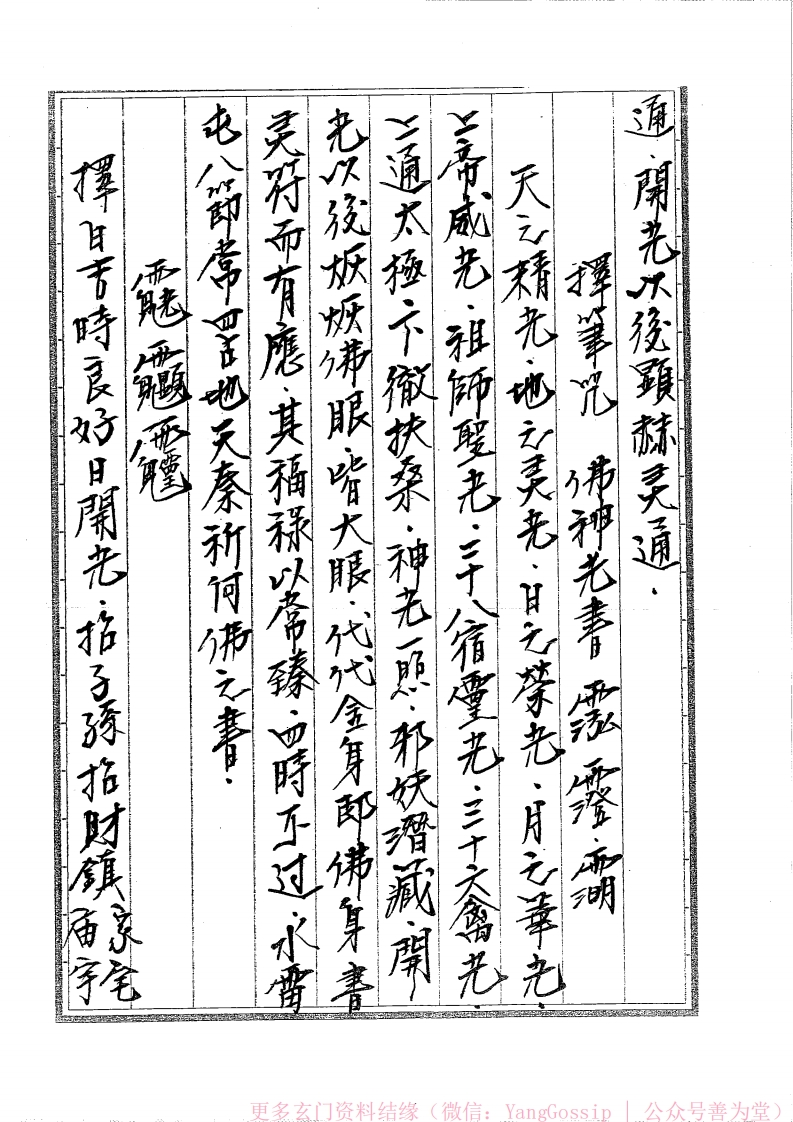 通．開光以後顕赫灵通．
擇筆咒　佛神光書
天之精光．地之灵光．日之荣光．月之華光．
上帝威光．祖師聖光．二十八宿靈光．三十六禽光．
上通太极．下徹扶桑．神光一照．邪妖潛藏．開
光以後．佛眼．皆大眼．代代金身即佛身書
灵符而有應．其福禄以常臻．四時不过．水雷
屯八節常四吉地天泰祈何佛之書．
擇日吉時良好日開光．招子孫招財鎮家宅
庙宇
更多玄门资料结缘（微信：YangGossip | 公众号善为堂）